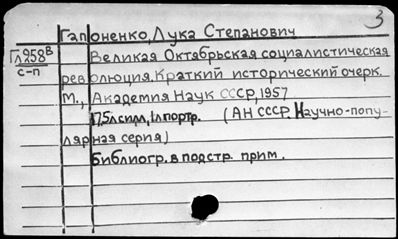 3
Гапоненко, Лука Степанович
Гл258в Великая Октябрьская социалистическая
с-п революция. Краткий исторический очерк.
М., Академия Наук СССР, 1957
175л с илл, 1л портр. (АН СССР. Научно-попу-
лярная серия)
Библиогр. в подстр. прим.